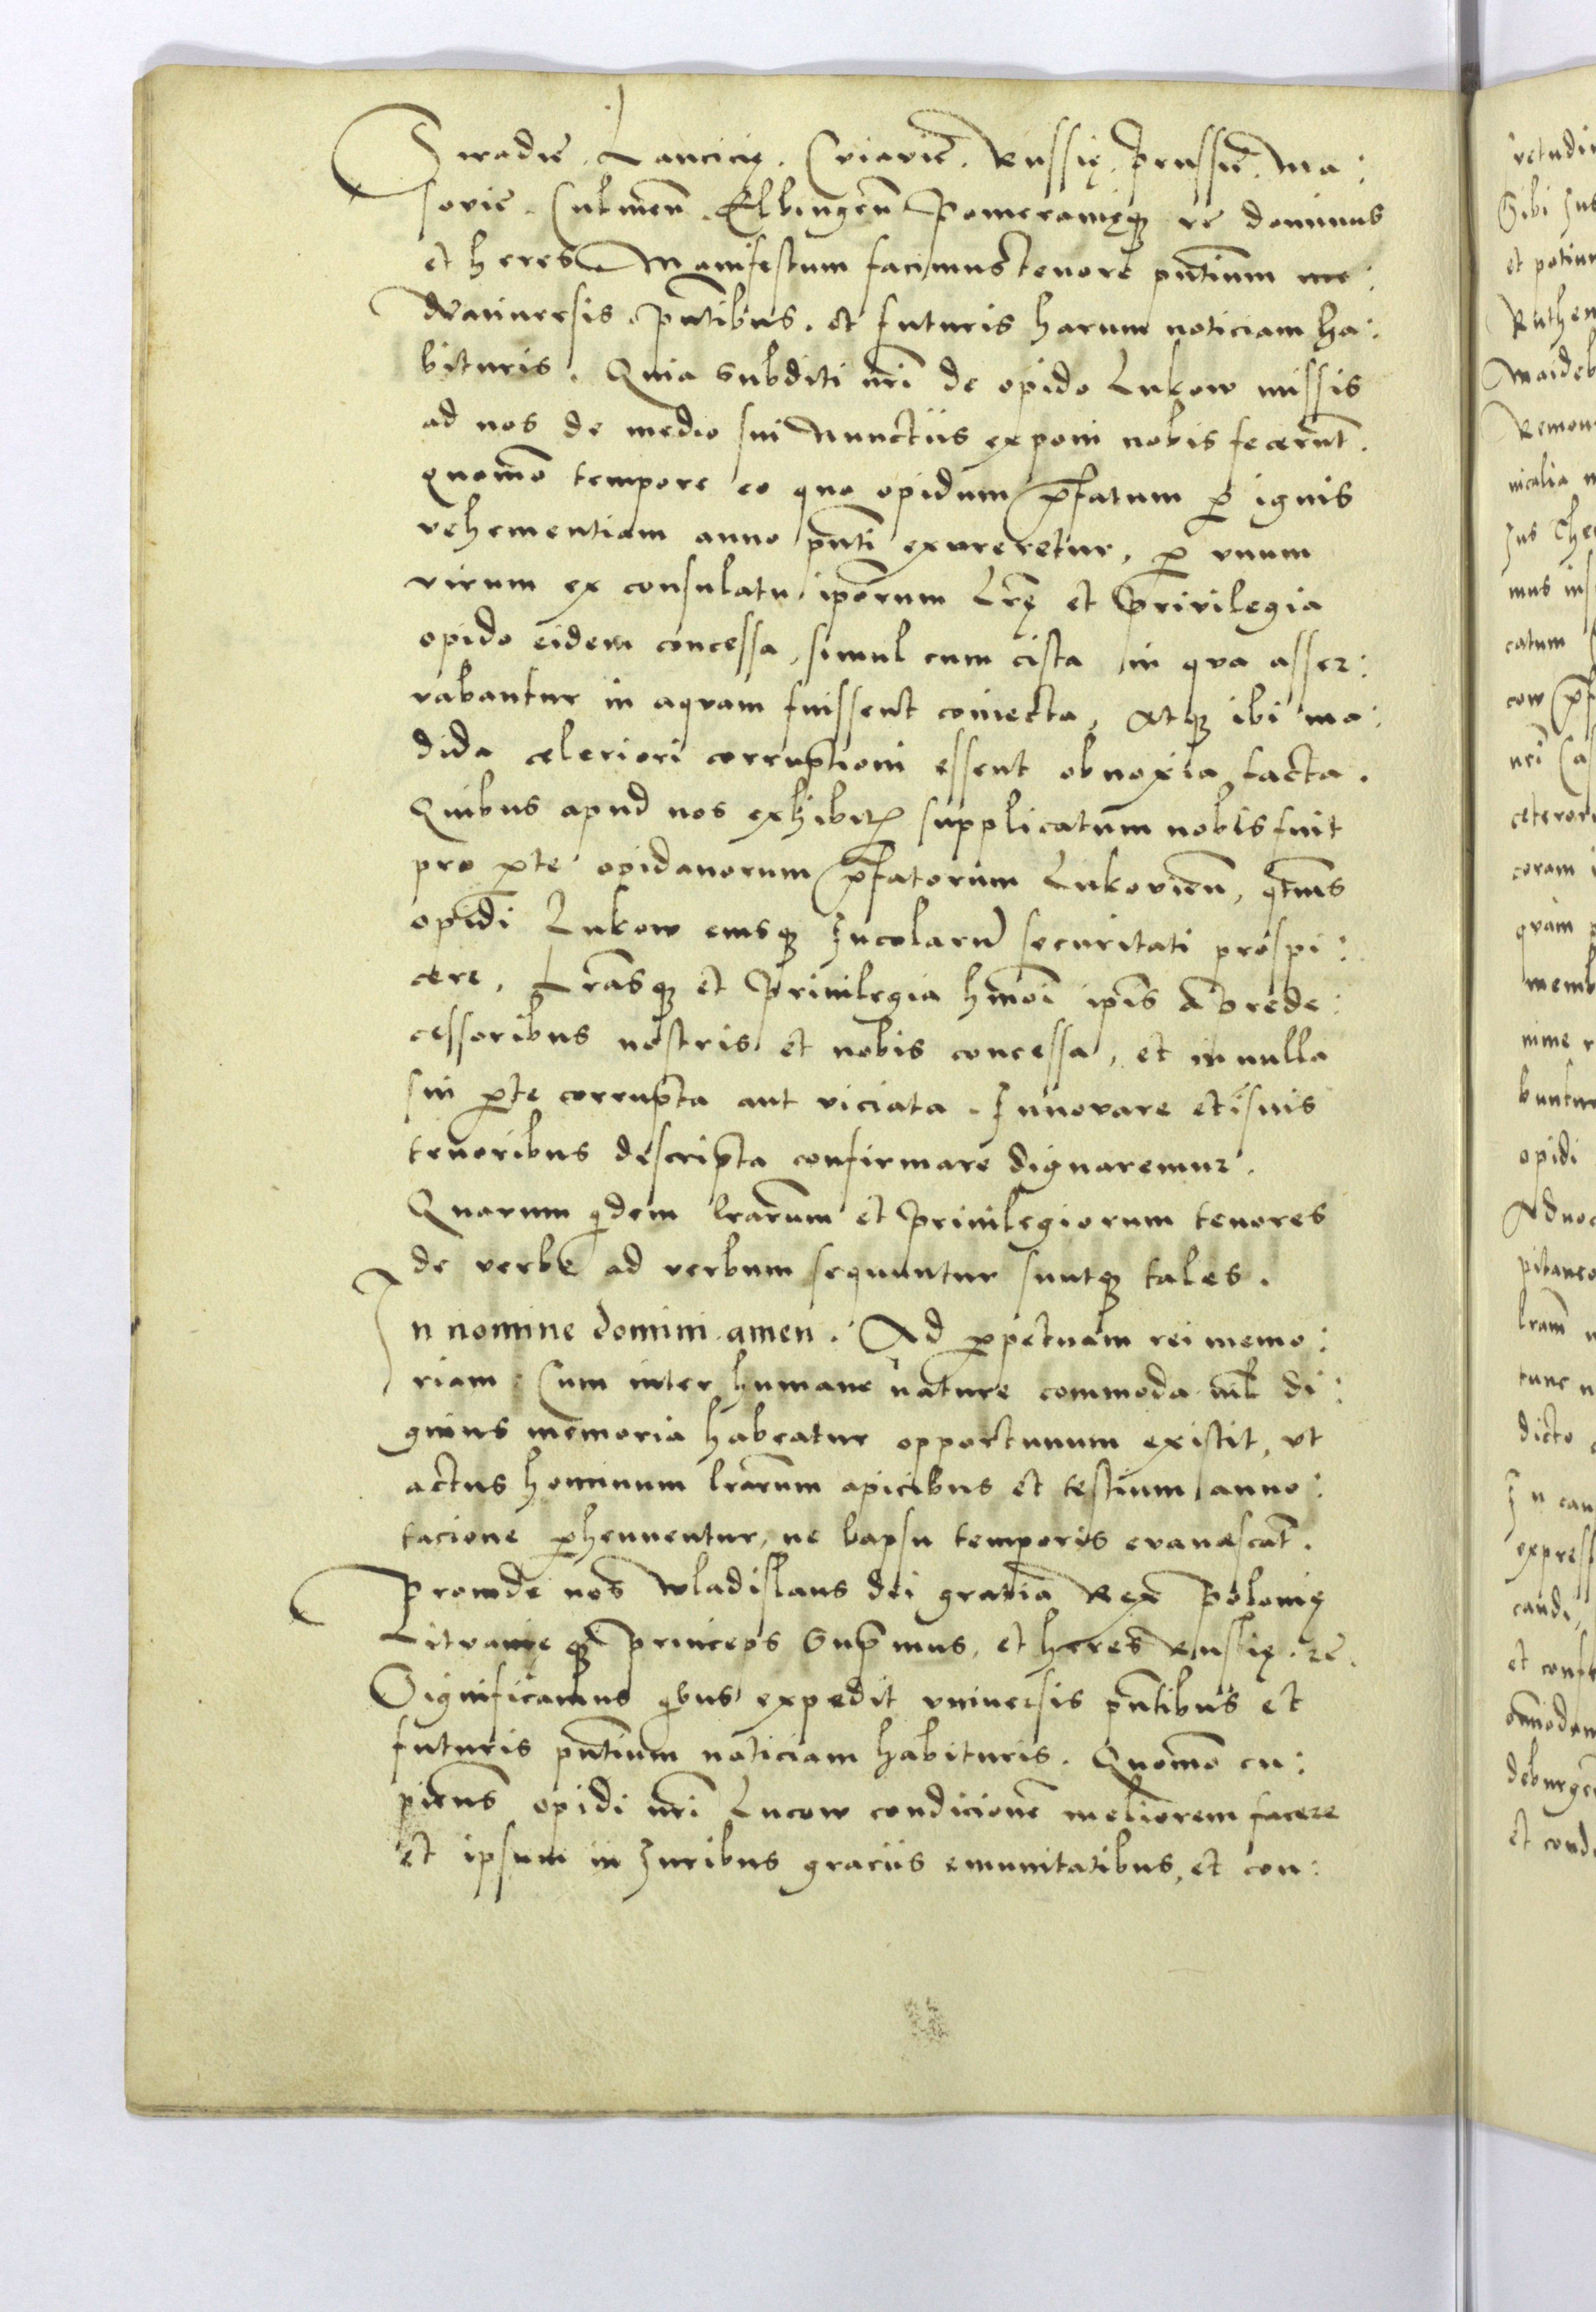 Siradie. Lancicię. Cviavie. Russię. Prussie. Ma:
sovie. Culmen̄. Elbingen̄. Pomeranięq3 rc̄ dominus
et heres Manifestum facimus tenore pn̄tium
Vniuersis pn̄tibus. et futuris harum noticiam ha:
bituris. Quia Subditi nr̄i de opido Lukow missis
ad nos de medio sui Nunctiis exponi nobis fecerūt.
quomō tempore eo quo opidum p̄fatum ꝑ ignis
vehementiam anno pn̄ti exureretur, ꝑ vnum
virum ex consulatu ip̄orum Lr̄ę et Privilegia
opido eidem concessa, simul cum cista in qva asser:
vabantur in aqvam fuissent coniecta, Atq3 ibi ma:
dida celeriori corruptioni essent obnoxia facta.
Quibus apud nos exhibitꝭ supplicatum nobis fuit
pro ꝑte opidanorum p̄fatorum Lukovien̄, qt̄nus
opidi Lukow eiusq3 Incolarū securitati prospi:
cere, Lr̄asq3 et Priuilegia hm̄oi ip̄is A Prede:
cessoribus nostris et nobis concessa, et in nulla
sui ꝑte corrupta aut viciata. Innovare et suis
tenoribus descripta confirmare dignaremur.
Quarum qdem lr̄arum et Priuilegiorum tenores
de verbo ad verbum sequuntur suntq3 tales.
In nomine domini amen. Ad ꝑpetuam rei memo:
riam. Cum inter humane nature commoda nil̄ di:
gnius memoria habeatur opportunum existit, vt
actus hominum lr̄arum apicibus et testium anno:
tacione ꝑhennentur, ne lapsu temporis evanescāt.
Proinde nos Wladislaus dei gratia Rex Polonię
Litvanieq3 princeps Sup̄mus, et heres Russię. rc̄.
Significamus qbus expedit vniuersis pn̄tibus et
futuris pn̄tium noticiam habituris. Quomō cu:
piens opidi nr̄i Lucow condicionē meliorem facere
et ipsum in Iuribus graciis emunitatibus, et con: